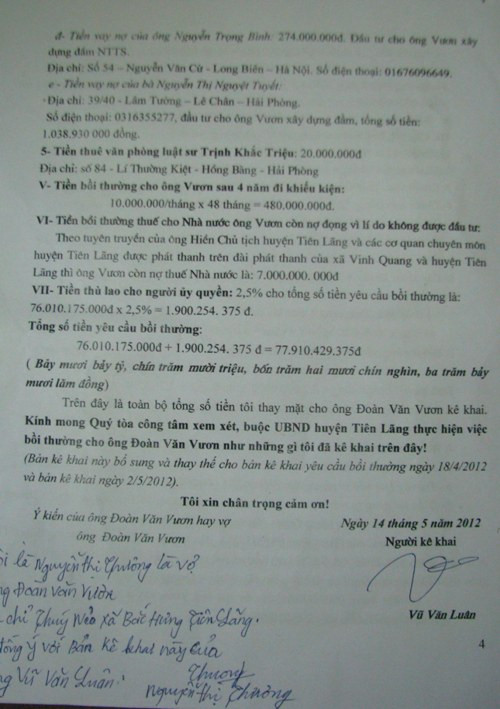 d- Tiền vay nợ của ông Nguyễn Trọng Bình: 274.000.000đ. Đầu tư cho ông Vươn xây
dựng đầm NTTS.
Địa chỉ: Số 54 – Nguyễn Văn Cừ - Long Biên – Hà Nội. Số điện thoại: 01676096649.
e - Tiền vay nợ của bà Nguyễn Thị Nguyệt Tuyết:
Địa chỉ: 39/40 - Lâm Tường – Lê Chân – Hải Phòng.
Số điện thoại: 0316355277, đầu tư cho ông Vươn xây dựng đầm, tổng số tiền:
1.038.930 000 đồng.
5- Tiền thuê văn phòng luật sư Trịnh Khắc Triệu: 20.000.000đ
Địa chỉ: số 84 - Lí Thường Kiệt - Hồng Bàng - Hải Phòng
V- Tiền bồi thường cho ông Vươn sau 4 năm đi khiếu kiện:
10.000.000/tháng x 48 tháng = 480.000.000đ.
VI- Tiền bồi thường thuế cho Nhà nước ông Vươn còn nợ đọng vì lí do không được đầu tư:
Theo tuyên truyền của ông Hiền Chủ tịch huyện Tiên Lãng và các cơ quan chuyên môn
huyện Tiên Lãng được phát thanh trên đài phát thanh của xã Vinh Quang và huyện Tiên
Lãng thì ông Vươn còn nợ thuế Nhà nước là: 7.000.000. 000đ
VII- Tiền thù lao cho người ủy quyền: 2,5% cho tổng số tiền yêu cầu bồi thường là:
76.010.175.000đ x 2,5% = 1.900.254. 375 đ.
Tổng số tiền yêu cầu bồi thường:
76.010.175.000đ + 1.900.254. 375 đ = 77.910.429.375đ
( Bảy mươi bảy tỷ, chín trăm mười triệu, bốn trăm hai mươi chín nghìn, ba trăm bảy
mươi lăm đồng)
Trên đây là toàn bộ tổng số tiền tôi thay mặt cho ông Đoàn Văn Vươn kê khai.
Kính mong Quý tòa công tâm xem xét, buộc UBND huyện Tiên Lãng thực hiện việc
bồi thường cho ông Đoàn Văn Vươn như những gì tôi đã kê khai trên đây!
(Bản kê khai này bổ sung và thay thế cho bản kê khai yêu cầu bồi thường ngày 18/4/2012
và bản kê khai ngày 2/5/2012).
Tôi xin chân trọng cảm ơn!
Ý kiến của ông Đoàn Văn Vươn hay vợ
ông Đoàn Văn Vươn
Ngày 14 tháng 5 năm 2012
Người kê khai
Vũ Văn Luân
là Nguyễn Thị Thương là vợ
Đoàn Văn Vươn
chỉ Thuý Nẻo xã Bắc Hưng Tiên Lãng.
đồng ý với Bản kê khai này của
Vũ Văn Luân.
Thương
Nguyễn Thị Thương
4